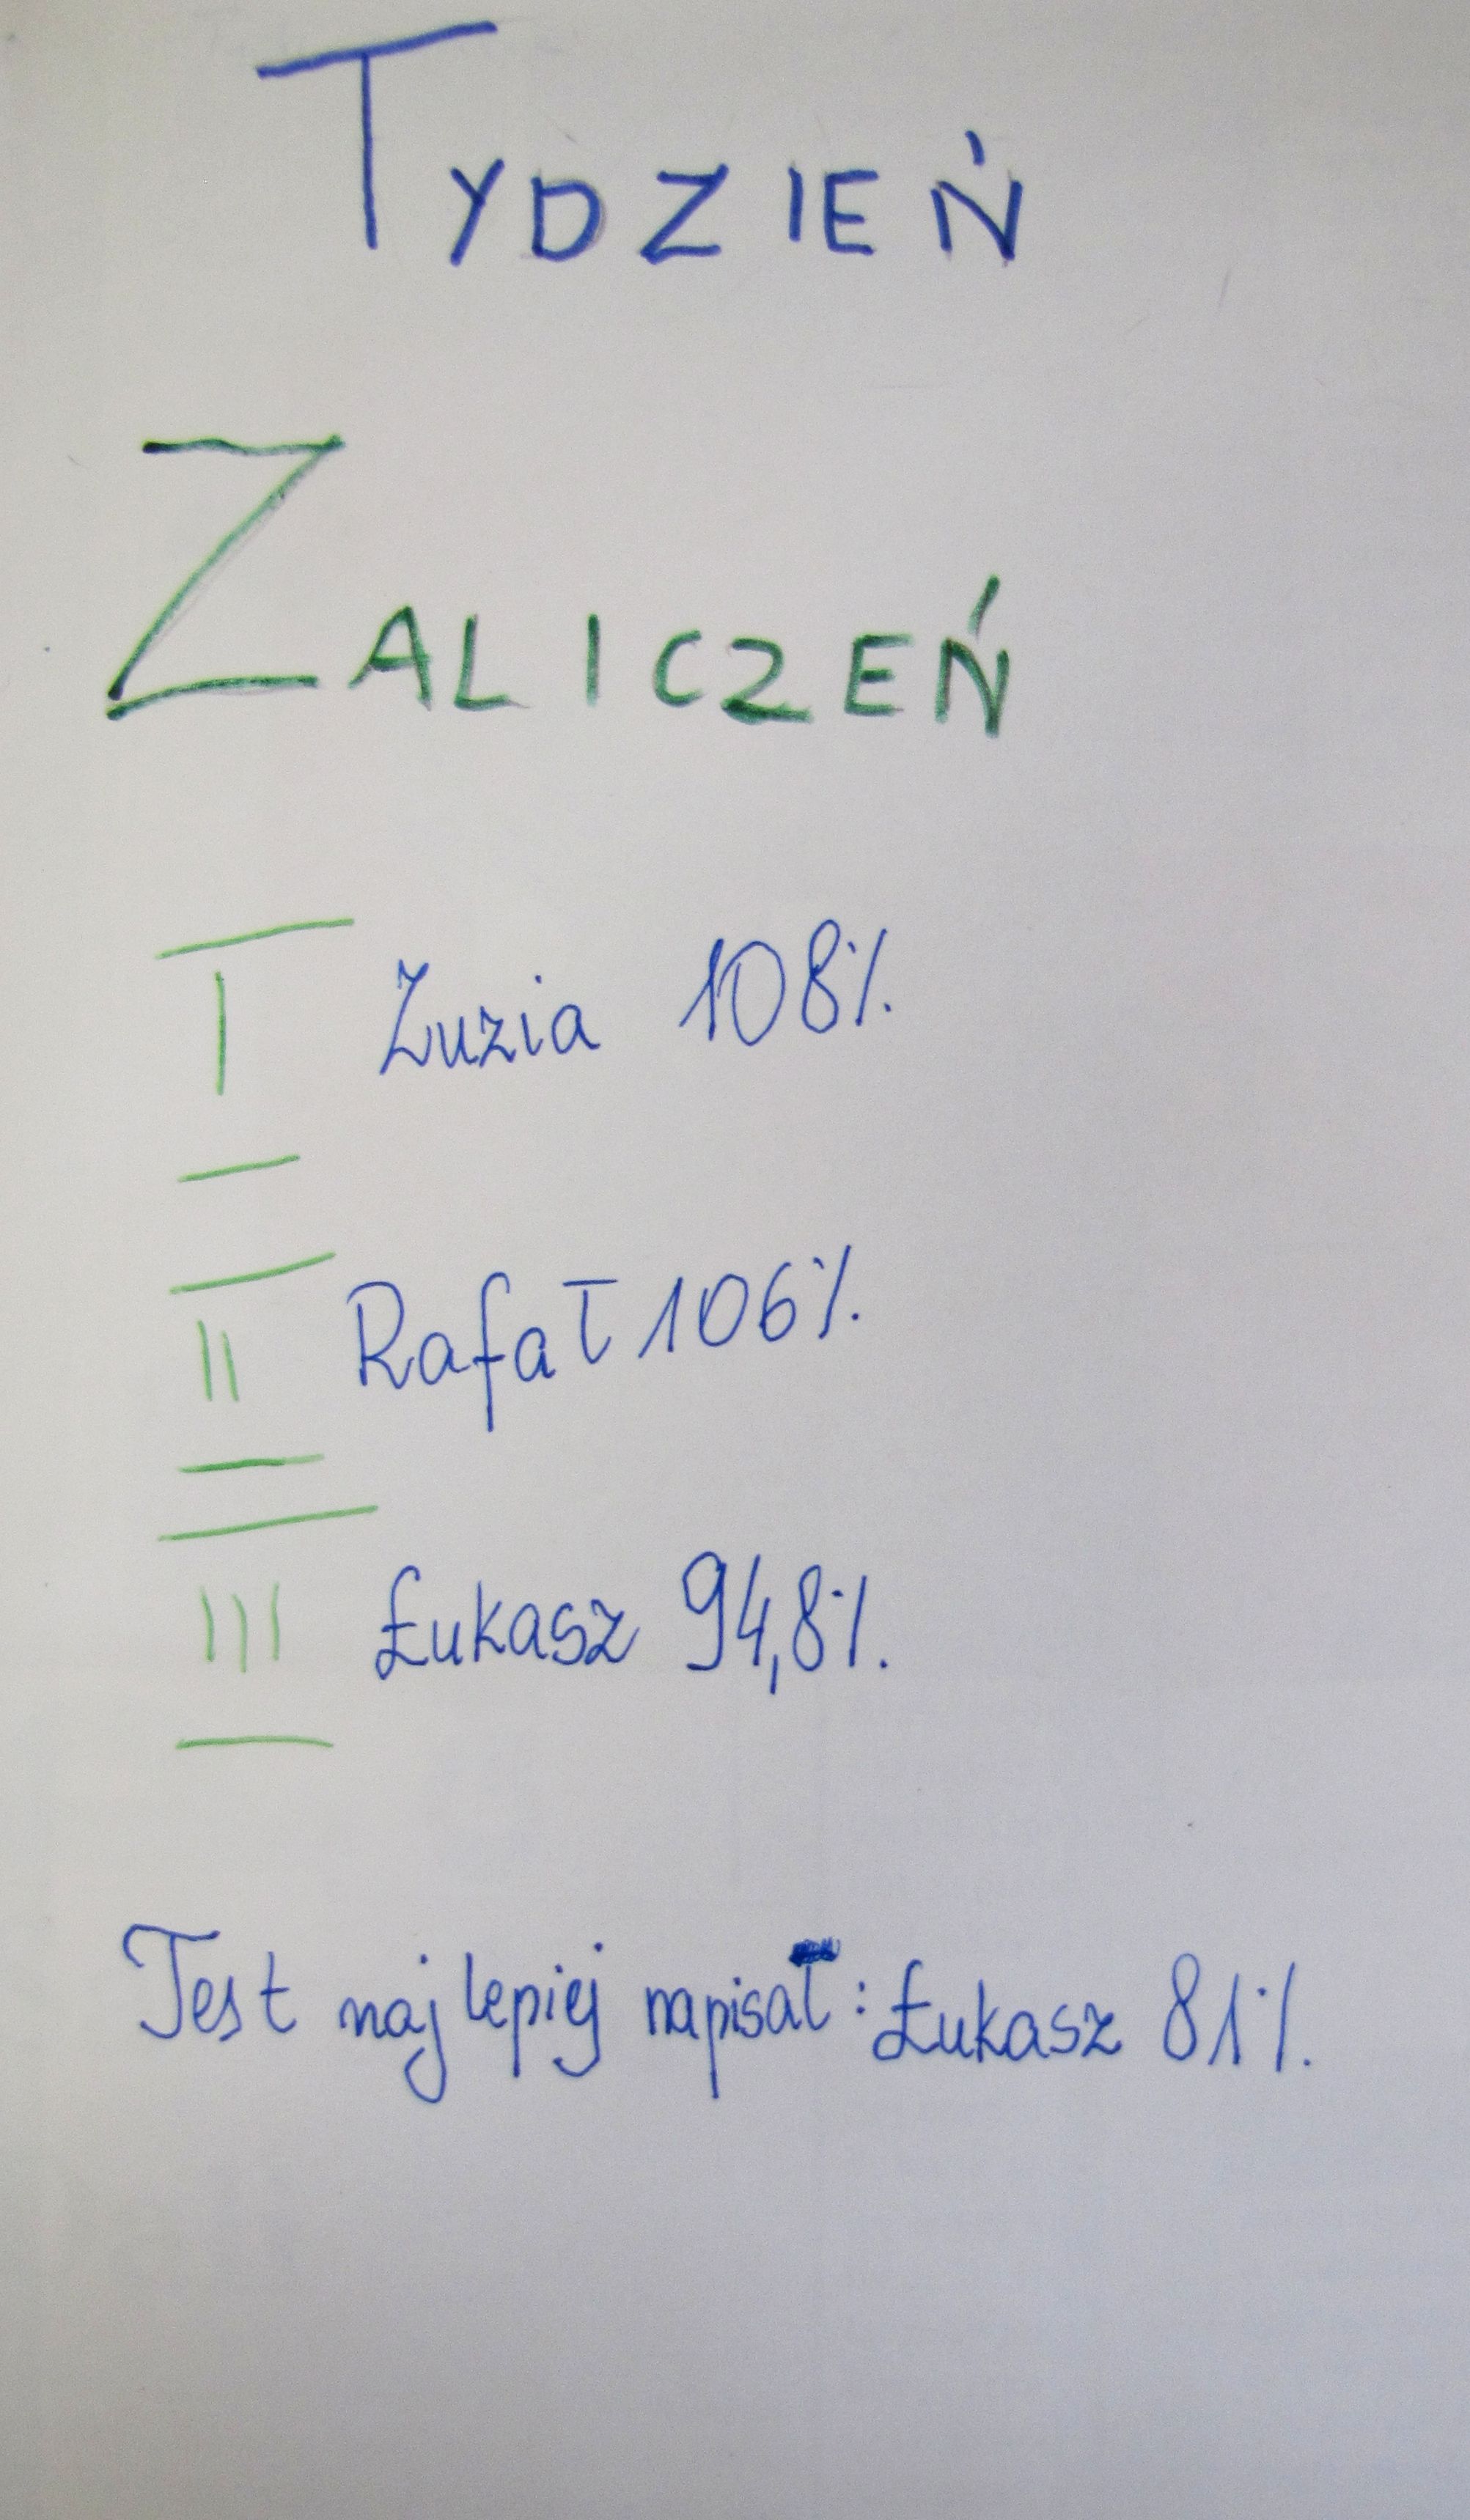 TYDZIEŃ
ZALICZEŃ
I Zuzia 108%
II Rafał 106%
III Łukasz 94,8%
Test najlepiej napisał: Łukasz 81%